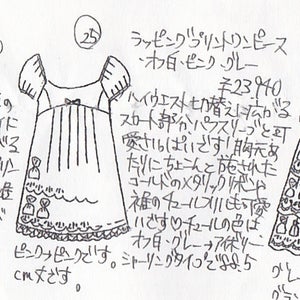 25
ラッピングプリントワンピース
オフ白・ピンク・グレー
¥23,940
ハイウエスト切替えに広がる
スカート部分、パフスリーブと可
愛さいっぱいです!胸元あ
たりにちょこんと施された
ゴールドのメタリックリボンも
裾のチュールスリも可愛
いです♡チュールの色は
オフ白・グレー→アイボリー
ピンク→ピンクです。
シャーリングタイプで
cm丈です。